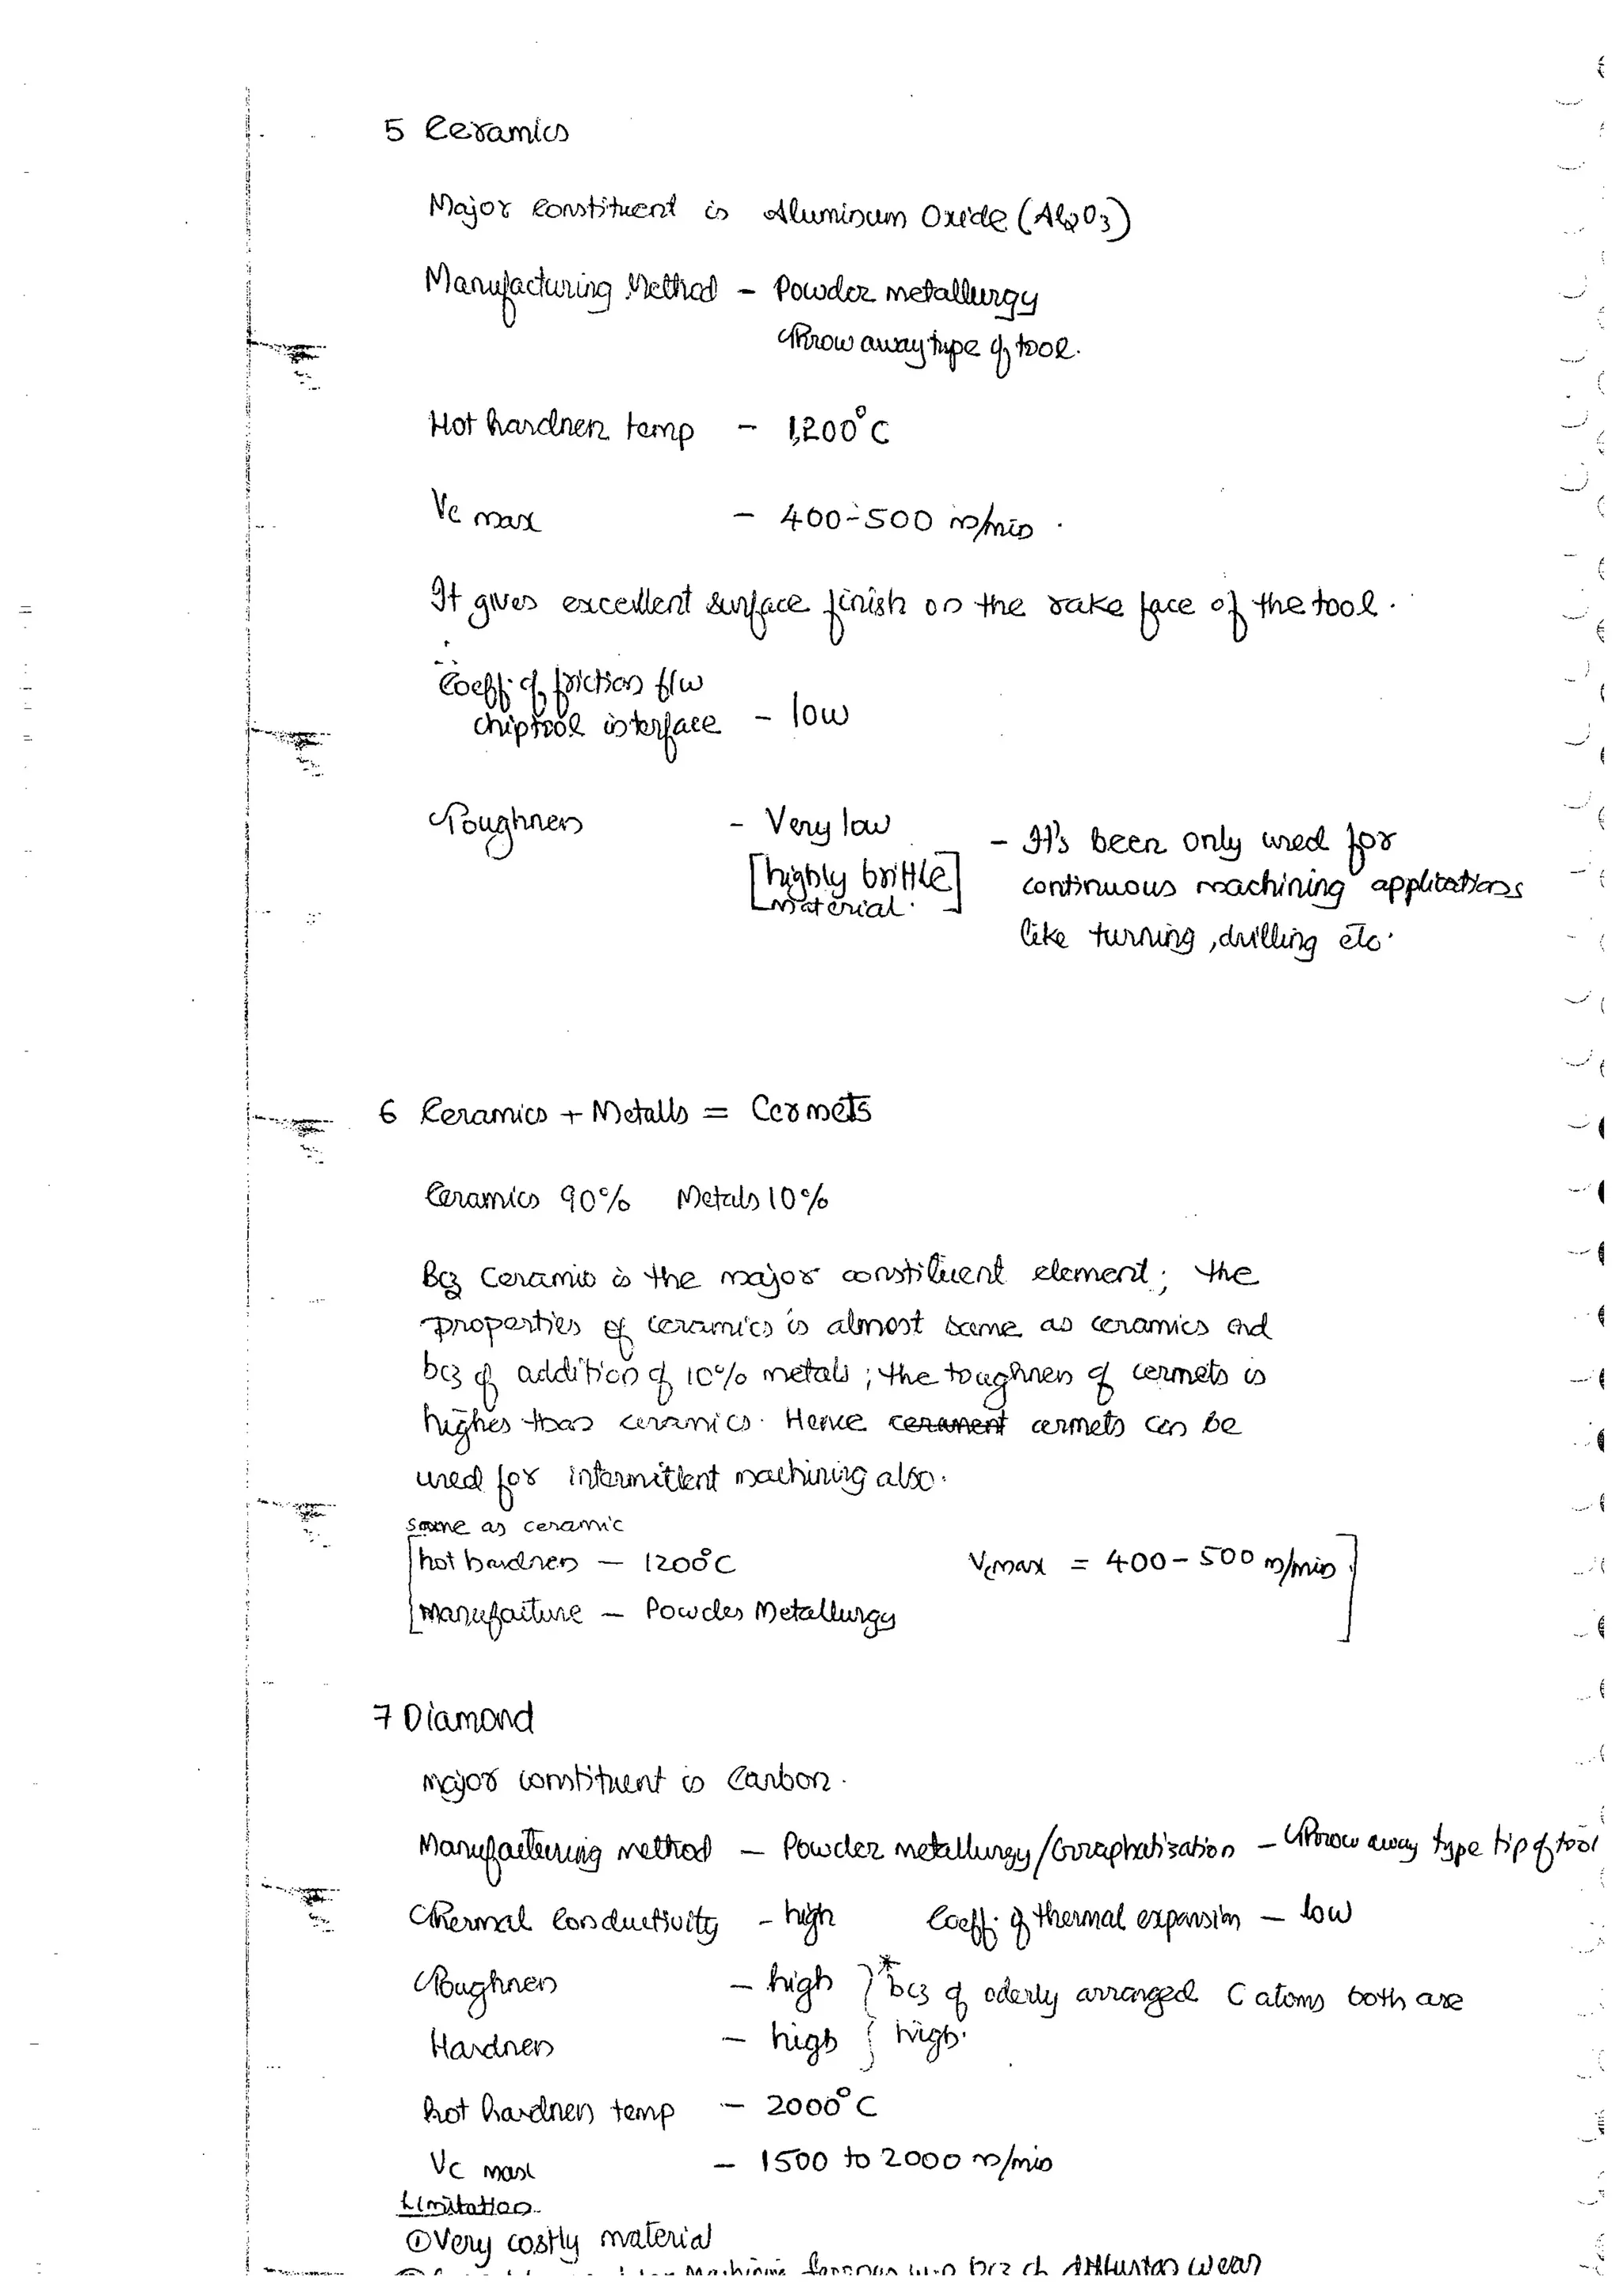 5 Ceramics
Major constituent is Aluminum Oxide (Al2O3)
Manufacturing Method - Powder metallurgy
Throw away type of tool.
Hot hardness temp - 1,200°C
Vc max - 400-500 m/min.
It gives excellent surface finish on the rake face of the tool.
∴ Coeff. of friction b/w
chip tool interface - low
Toughness - Very low
[highly brittle material.]
- It's been only used for
continuous machining applications
like turning, drilling etc.
6 Ceramics + Metalls = Cermets
Ceramics 90% Metals 10%
Bcz Ceramic is the major constituent element; the
properties of ceramics is almost same as ceramics and
bcz of addition of 10% metals; the toughness of cermets is
higher than ceramics. Hence cerament cermets can be
used for intermittent machining also.
same as ceramic
[hot hardness - 1200°C Vcmax = 400-500 m/min
manufacture - Powder Metallurgy]
7 Diamond
major constituent is Carbon.
Manufacturing method - Powder metallurgy/Graphatisation - Throw away type tip of tool
Thermal Conductivity - high Coeff. of thermal expansion - low
Toughness - high } * bcz of oderly arranged C atoms both are
Hardness - high } high.
hot hardness temp - 2000°C
Vc max - 1500 to 2000 m/min
Limitation
① Very costly material
Machining ferrous w.p bcz of diffusion wear